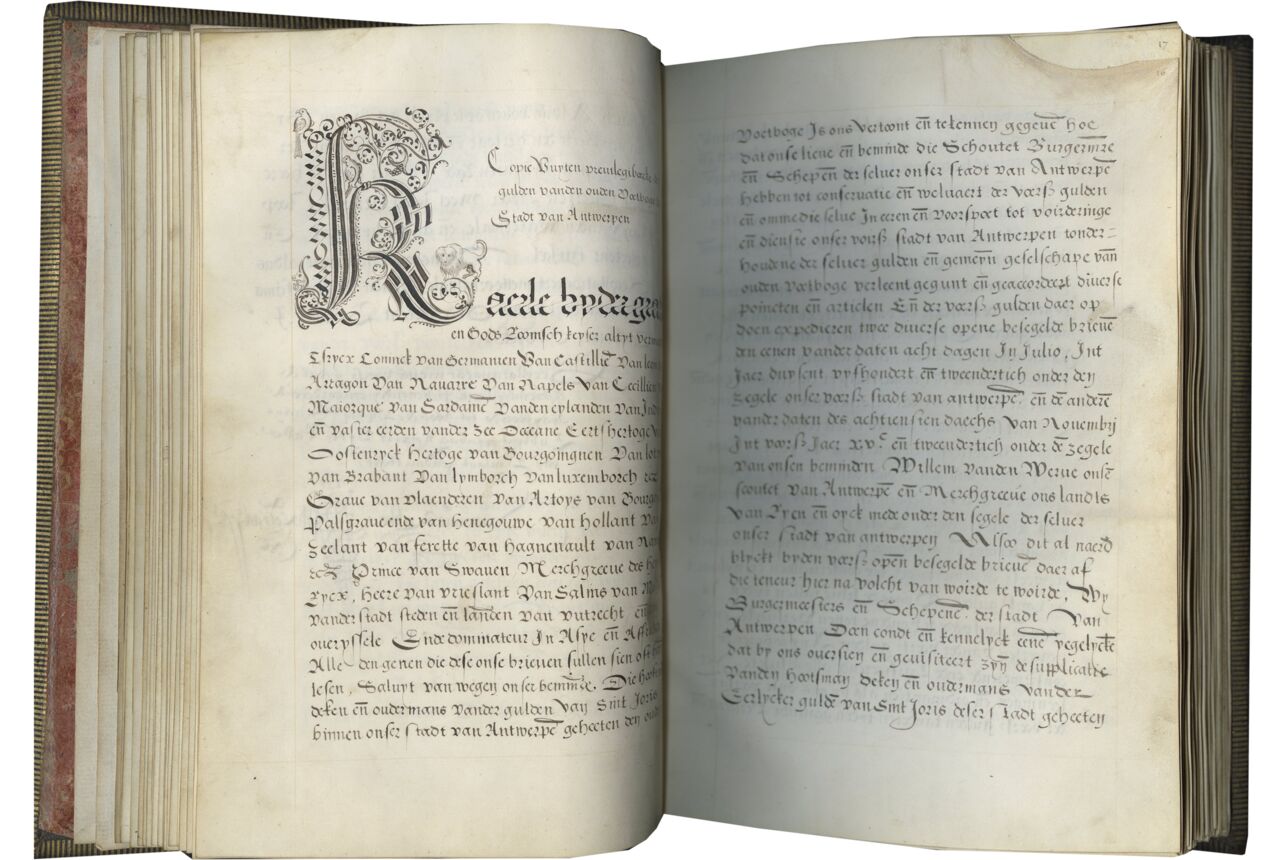 Copie Vuyten preuilegiboecke
gulden vanden ouden Voetboge
Stadt van Antwerpen
Kaerle byder
en Gods Roomsch keyser altyt
Coninck van Germanien Van Castillie Van
Arragon Van Nauarre Van Napels Van Cecillien
Maiorque Van Sardaine Vanden eylanden Van
en̄ vaster eerden vander zee Occeane Eertshertoge
Oostenryck Hertoge van Bourgoingnen Van
van Brabant Van lymborch Van luxemborch
Graue van vlaenderen van Artoys van
Palsgraue ende van Henegouwe van Hollant Van
zeelant van ferette van Hagnenault van
Prince van Swauen Merchgreeue des
Rycx, Heere van vrieslant Van Salms van
vander stadt steden en̄ landen van vutrecht en̄
oueryssele Ende dominateur In Asye en̄
Alle den genen die dese onse brieuen sullen sien oft
lesen, Saluyt van wegen onser beminde. Die
deken en̄ oudermans vander gulden van Sint Joris
binnen onser stadt van Antwerpē geheeten den
17
Voetboge Is ons vertoont en̄ te kennen gegeuē hoe
dat onse lieue en̄ beminde die Schoutet Burgermr̄e
en̄ Schepen̄ der seluer onser stadt van Antwerpē
hebben tot conseruatie en̄ weluaert der voorß gulden
en̄ omme die selue In eeren en̄ voorspoet tot voirderinge
en̄ dienste onser voirß stadt van Antwerpen tonder=
houdene der seluer gulden en̄ gemeyn geselschape van̄
ouden voetboge verleent gegunt en̄ geaccordeert diuerse
poincten en̄ articlen En̄ der voorß gulden daer op
doen expedieren twee diuerse opene besegelde brieuē
den eenen vander daten acht dagen In Julio, Int
Jaer duysent vyfhondert en̄ tweendertich onder den
zegele onser voorß stadt van antwerpē en̄ dē anderē
vander daten des achtiensten daechs van Nouembrj
Int voorß Jaer xvᶜ en̄ tweendertich onder dē zegele
van onsen beminden Willem Vanden Werue onsē
scoutet van Antwerpē en̄ Merchgreeue ons landts
van Ryen en̄ oyck mede onder den segele der seluer
onser stadt van antwerpen Alsoo dit al naerd
blyckt byden voorß openē besegelde brieuen daer af
die teneur hier na volcht van woirde te woirde, Wy
Burgermeesters en̄ Schepenē der stadt Van
Antwerpen Doen condt en̄ kennelyck eenē yegelyckē
dat by ons ouersien en̄ geuisiteert zyn de supplicatie
Vanden hootsman deken en̄ oudermans vander
Eerlycker guldē van Sint Joris deser stadt geheeten